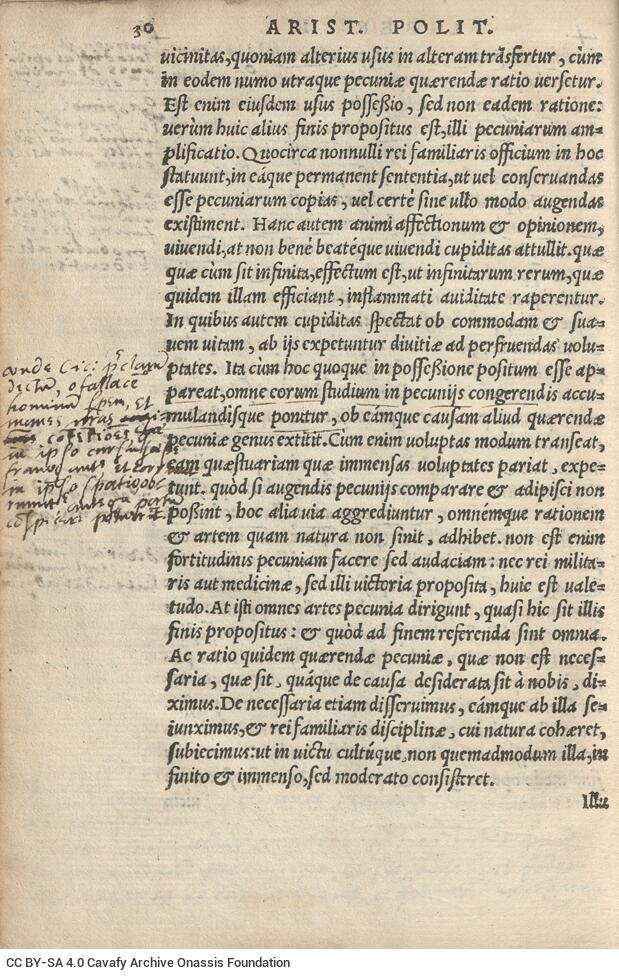 30 ARIST. POLIT.
uicinitas, quoniam alterius usus in alteram trāsfertur, cùm
in eodem numo utraque pecuniæ quærendæ ratio uersetur.
Est enim eiusdem usus possessio, sed non eadem ratione:
uerùm huic alius finis propositus est, illi pecuniarum am-
plificatio. Quocirca nonnulli rei familiaris officium in hoc
statuunt, in eáque permanent sententia, ut uel conseruandas
esse pecuniarum copias, uel certè sine ullo modo augendas
existiment. Hanc autem animi affectionum & opinionem,
uiuendi, at non benè beatéque uiuendi cupiditas attullit. quæ
quæ cùm sit infinita, effectum est, ut infinitarum rerum, quæ
quidem illam efficiant, inflammati auiditate raperentur.
In quibus autem cupiditas spectat ob commodam & sua-
uem uitam, ab ijs expetuntur diuitiæ ad perfruendas uolu-
ptates. Ita cùm hoc quoque in possessione positum esse ap-
pareat, omne eorum studium in pecunijs congerendis accu-
mulandisque ponitur, ob eámque causam aliud quærendæ
pecuniæ genus extitit. Cùm enim uoluptas modum transeat,
eam quæstuariam quæ immensas uoluptates pariat, expe-
tunt. quòd si augendis pecunijs comparare & adipisci non
possint, hoc alia uia aggrediuntur, omnémque rationem
& artem quam natura non sinit, adhibet. non est enim
fortitudinis pecuniam facere sed audaciam: nec rei milita-
ris aut medicinæ, sed illi uictoria proposita, huic est uale-
tudo. At isti omnes artes pecunia dirigunt, quasi hic sit illis
finis propositus: & quòd ad finem referenda sint omnia.
Ac ratio quidem quærendæ pecuniæ, quæ non est neces-
saria, quæ sit, quáque de causa desiderata sit à nobis, di-
ximus. De necessaria etiam disseruimus, eámque ab illa se-
iunximus, & rei familiaris disciplinæ, cui natura cohæret,
subiecimus: ut in uictu cultúque, non quemadmodum illa, in
finito & immenso, sed moderato consisteret.
Illu
unde Cic: p̄clarū
dictū, o fallace
hominū spem, et
in ipso
in ipso spatio
CC BY-SA 4.0 Cavafy Archive Onassis Foundation